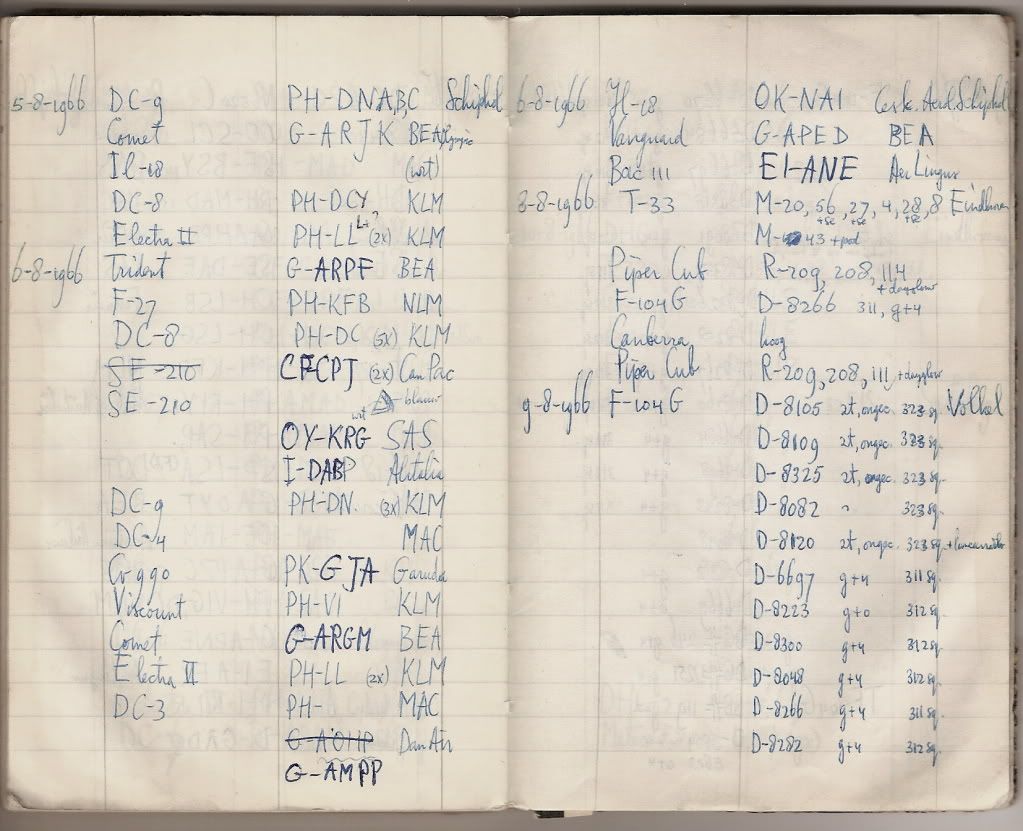 5-8-1966 DC-9 PH-DNA,B,C Schiphol
Comet G-ARJK BEA/Olympic
Il-18 (wit)
DC-8 PH-DCY KLM
Electra II PH-LL (2x) KLM
6-8-1966 Trident G-ARPF BEA
F-27 PH-KFB NLM
DC-8 PH-DC (5x) KLM
SE-210 CFCPJ (2x) CanPac
SE-210 wit blauw
OY-KRG SAS
I-DABP Alitalia
DC-9 PH-DN. (3x) KLM
DC-4 MAC
Cv 990 PK-GJA Garuda
Viscount PH-VI KLM
Comet G-ARGM BEA
Electra II PH-LL (2x) KLM
DC-3 PH- MAC
G-AOHP Dan Air
G-AMPP
6-8-1966 Il-18 OK-NAI Cesk. Aerol. Schiphol
Vanguard G-APED BEA
Bac 111 EI-ANE Aer Lingus
3-8-1966 T-33 M-20, 56, 27, 4, 28, 8 Eindhoven
+se +se +se
M- 43 + pod
Piper Cub R-209, 208, 114
+ dayglow
F-104G D-8266 311, g+4
Canberra hoog
Piper Cub R-209, 208, 111, + dayglow
9-8-1966 F-104G D-8105 2t, ongec. 323 sq. Volkel
D-8109 2t, ongec. 323 sq.
D-8325 2t, ongec. 323 sq.
D-8082 " 323 sq.
D-8120 2t, ongec. 323 sq.
D-6697 g+4 311 sq.
D-8223 g+0 312 sq.
D-8300 g+4 312 sq.
D-8048 g+4 312 sq.
D-8266 g+4 311 sq.
D-8282 g+4 312 sq.